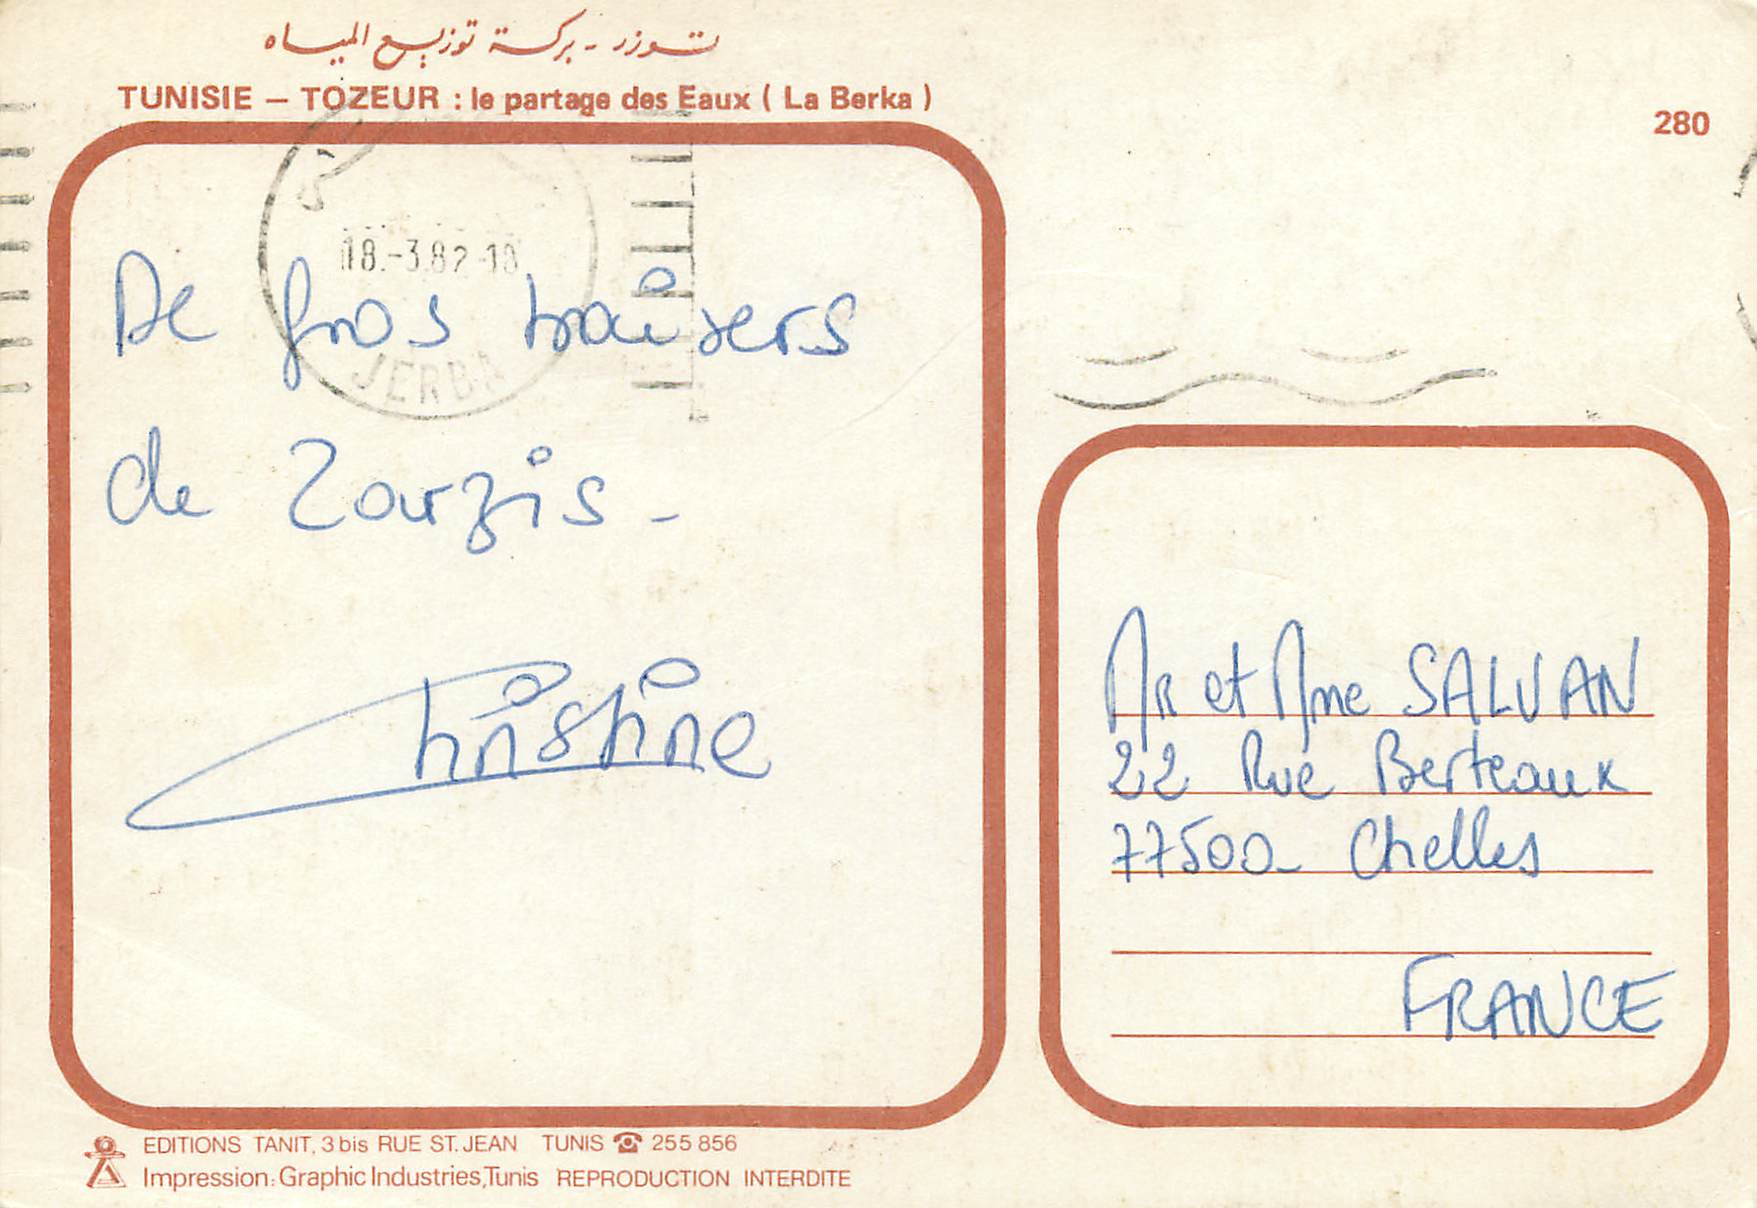 تـوزر - بركـة توزيـع الميـاه
TUNISIE – TOZEUR : le partage des Eaux ( La Berka )
280
18.-3.82-18
JERBA
De gros baisers
de Zarzis -
Christine
Mr et Mme SALVAN
22 Rue Berteaux
77500- Chelles
FRANCE
EDITIONS TANIT, 3 bis RUE ST. JEAN TUNIS ☎ 255 856
Impression: Graphic Industries, Tunis REPRODUCTION INTERDITE